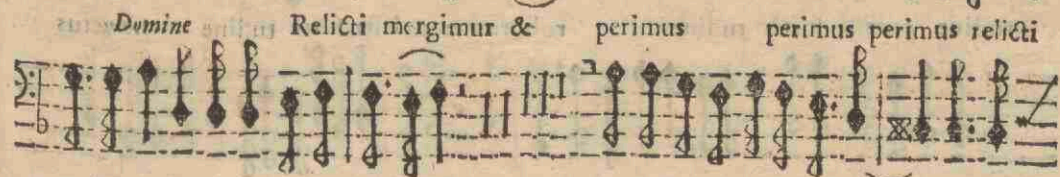 Domine Relicti mergimur & perimus perimus perimus relicti